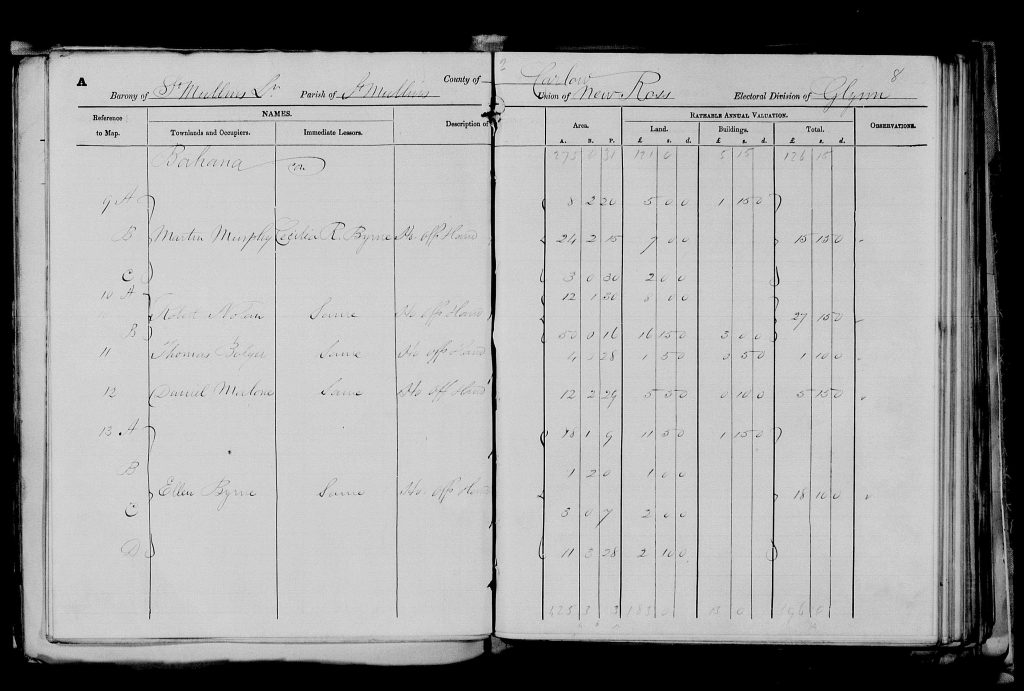 A
County of Carlow 8
Barony of St Mullins Lr Parish of St Mullins Union of New Ross Electoral Division of Glynn
Reference to Map. NAMES. Description of Area. RATEABLE ANNUAL VALUATION. OBSERVATIONS.
Townlands and Occupiers. Immediate Lessors. Land. Buildings. Total.
A. R. P. £ s. d. £ s. d. £ s. d.
Bahana con 275 0 31 121 0 5 15 126 15
9 A 8 2 20 5 0 0 1 15 0
B Martin Murphy Cecilia R. Byrne Ho. offs & land 24 2 15 7 0 0 15 15 0
C 3 0 30 2 0 0
10 A 12 1 30 8 0 0
Robert Nolan Same Ho offs & land 27 15 0
B 50 0 16 16 15 0 3 0 0
11 Thomas Bolger Same Ho offs & land 4 28 1 5 0 0 5 0 1 10 0
12 Daniel Malone Same Ho off & land 12 2 29 5 5 0 0 10 0 5 15 0
13 A 18 1 9 11 5 0 1 15 0
B 1 2 0 1 0 0
Ellen Byrne Same Ho. offs & land 18 10 0
C 3 0 7 2 0 0
D 11 3 28 2 10 0
425 3 3 183 0 13 0 196 0